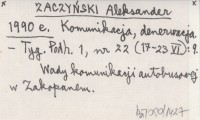 ZACZYŃSKI Aleksander
1990 e. Komunikacja, denerwacja
- Tyg. Podh. 1, nr 22 (17-23 VI): 9.
Wady komunikacji autobusowej
w Zakopanem.